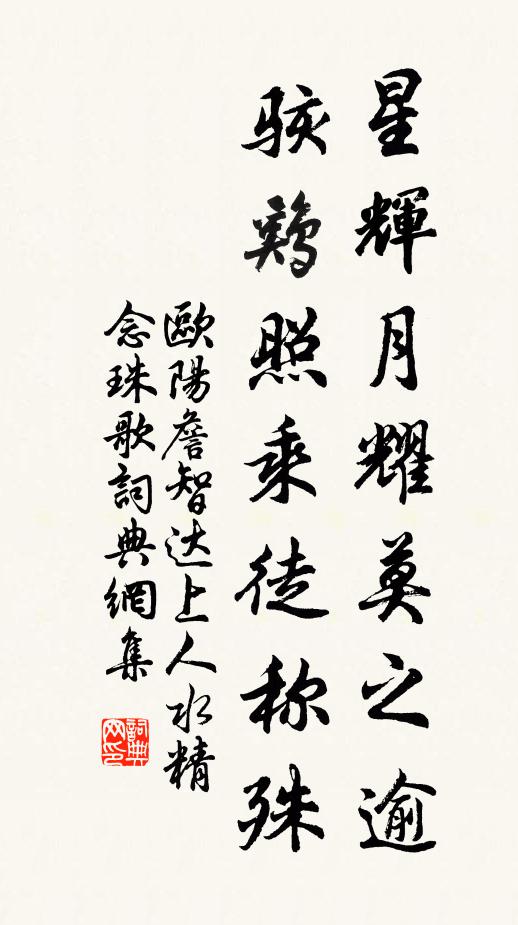 星輝月耀莫之逾
骇鷄照乘徒称殊
歐陽詹智达上人水精
念珠歌詞典網集
詞典
网印